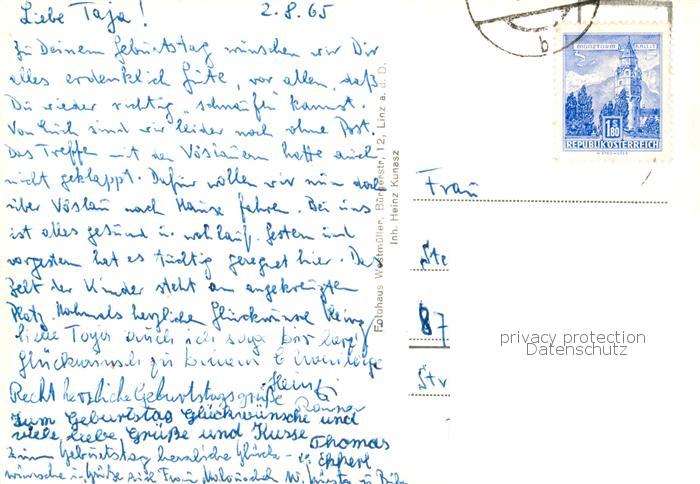 Liebe Taja! 2.8.65
Zu Deinem Geburtstag wünschen wir Dir
alles erdenklich Gute, vor allem, daß
Du wieder richtig "schnaufen" kannst.
Von Euch sind wir leider noch ohne Post.
Das Treffen mit den Vöslauern hatte auch
nicht geklappt. Dafür wollen wir nun doch
über Vöslau nach Hause fahren. Bei uns
ist alles gesund u. wohlauf. Gestern und
vorgestern hat es tüchtig geregnet hier. Das
Zelt der Kinder steht am angekreuzten
Platz. Nochmals herzlichen Glückwunsch
liebe Taja auch ich sage
Glückwunsch zu Deinem
Recht herzliche Geburtstagsgrüße
Zum Geburtstag Glückwünsche und
viele liebe Grüße und Küsse Thomas
Zum Geburtstag herzliche Glück-
wünsche u. Grüße auch Frau
Fotohaus Westmüller, Bürgerstr. 12, Linz a. d. D.
Inh. Heinz Kunasz
b
MÜNZTURM HALL I.T.
S 1.80
REPUBLIK ÖSTERREICH
Frau
Ste
87
Str
privacy protection
Datenschutz